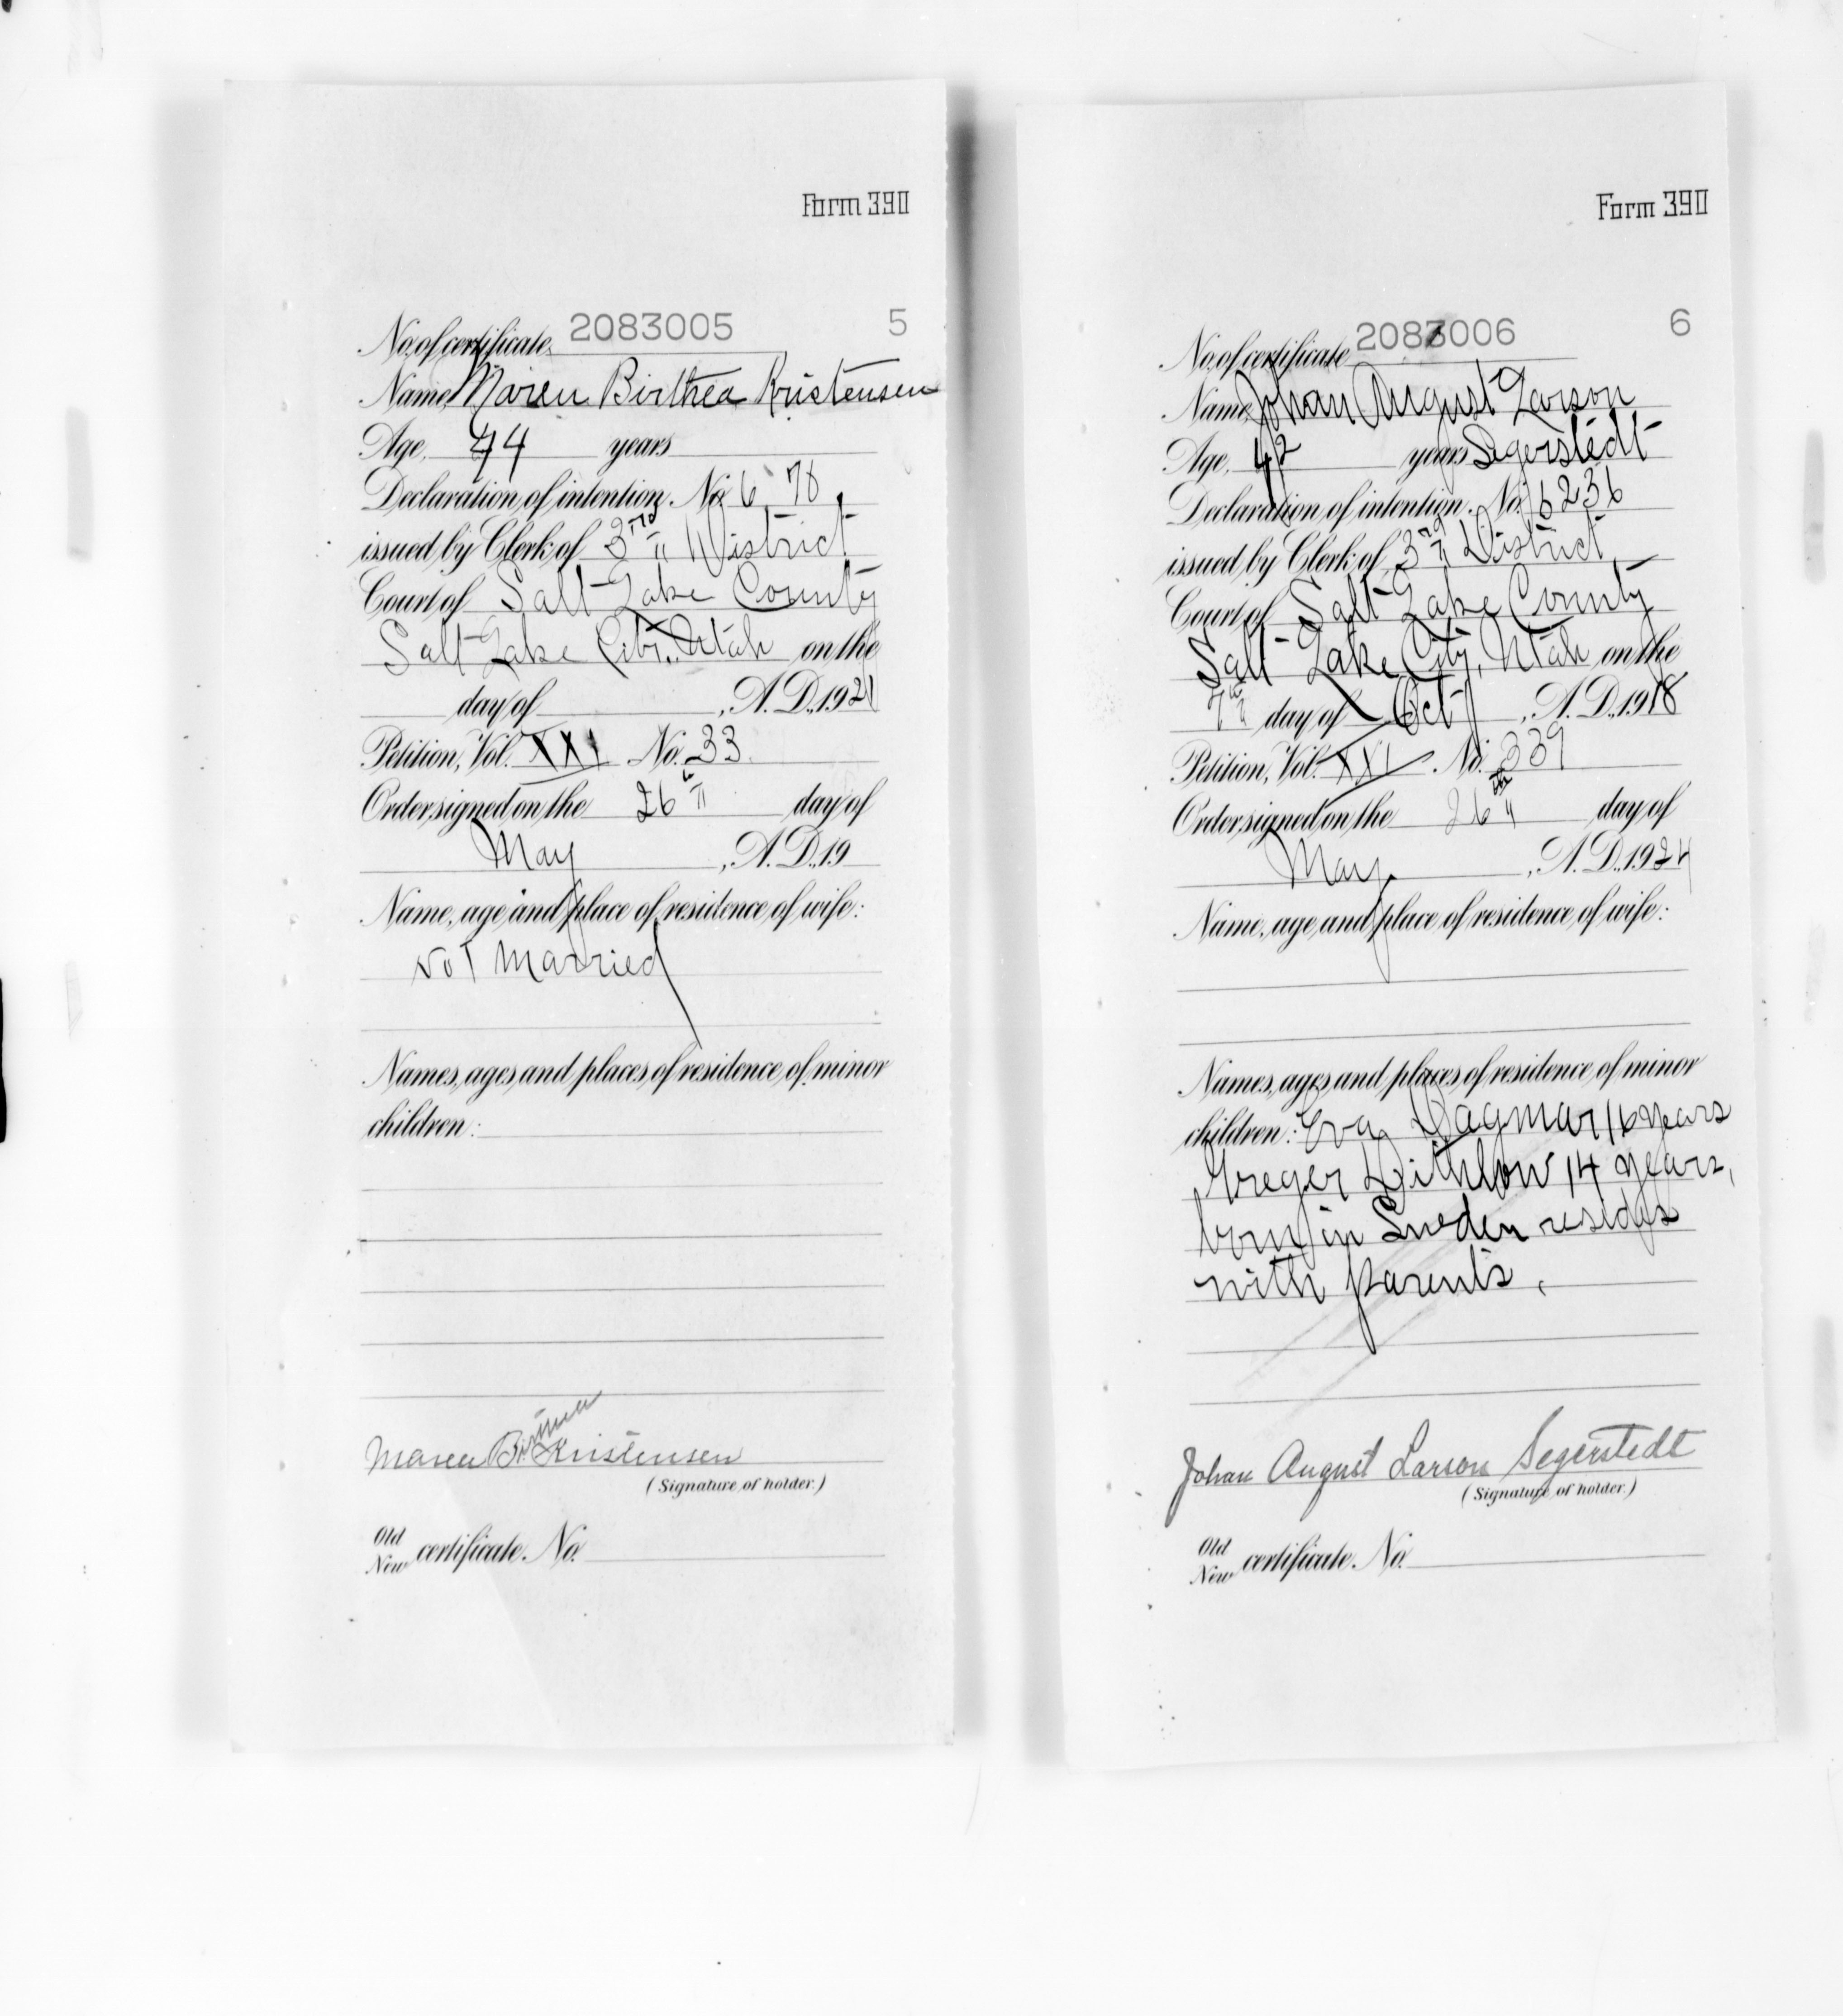 Form 390
No. of certificate, 2083005 5
Name, Maren Birthea Kristensen
Age, 44 years
Declaration of intention, No. 6 78
issued by Clerk of 3rd District
Court of Salt Lake County
Salt Lake City, Utah on the
day of , A. D., 1921
Petition, Vol. XXI No. 33
Order signed on the 26th day of
May , A. D., 19
Name, age and place of residence of wife:
Not Married
Names, ages, and places of residence of minor
children:
Maren Birthea Kristensen
(Signature of holder.)
Old
New certificate, No.
Form 390
No. of certificate 2083006 6
Name, Johan August Larson
Age, 42 years Segerstedt
Declaration of intention, No. 6236
issued by Clerk of 3rd District
Court of Salt Lake County
Salt Lake City, Utah on the
7th day of Oct , A. D., 1918
Petition, Vol. XXI No. 339
Order signed on the 26th day of
May , A. D., 1924
Name, age and place of residence of wife:
Names, ages and places of residence of minor
children: Eva Dagmar 16 years
Greger 14 years,
born in Sweden resides
with parents.
Johan August Larson Segerstedt
(Signature of holder.)
Old
New certificate, No.